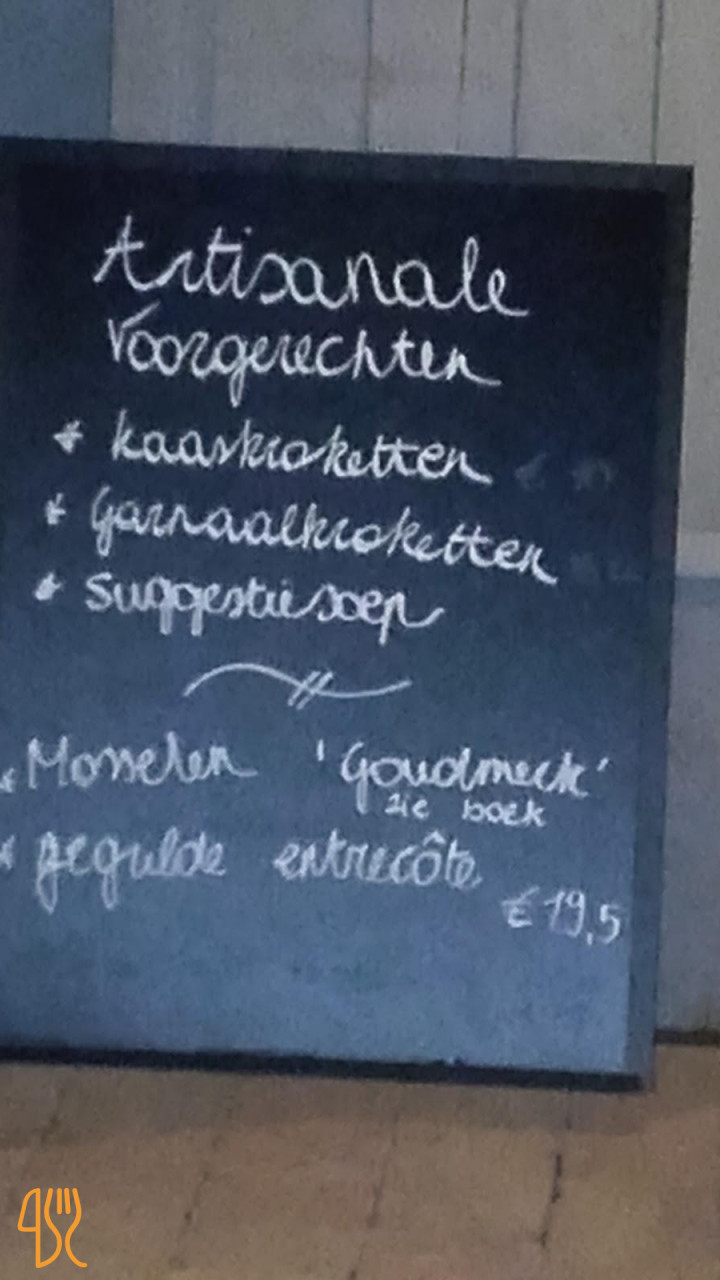 Artisanale
Voorgerechten
* kaaskroketten
* Garnaalkroketten
* suggestiesoep
* Mosselen 'Goudmeck'
zie boek
* gegulde entrecôte
€ 19,5